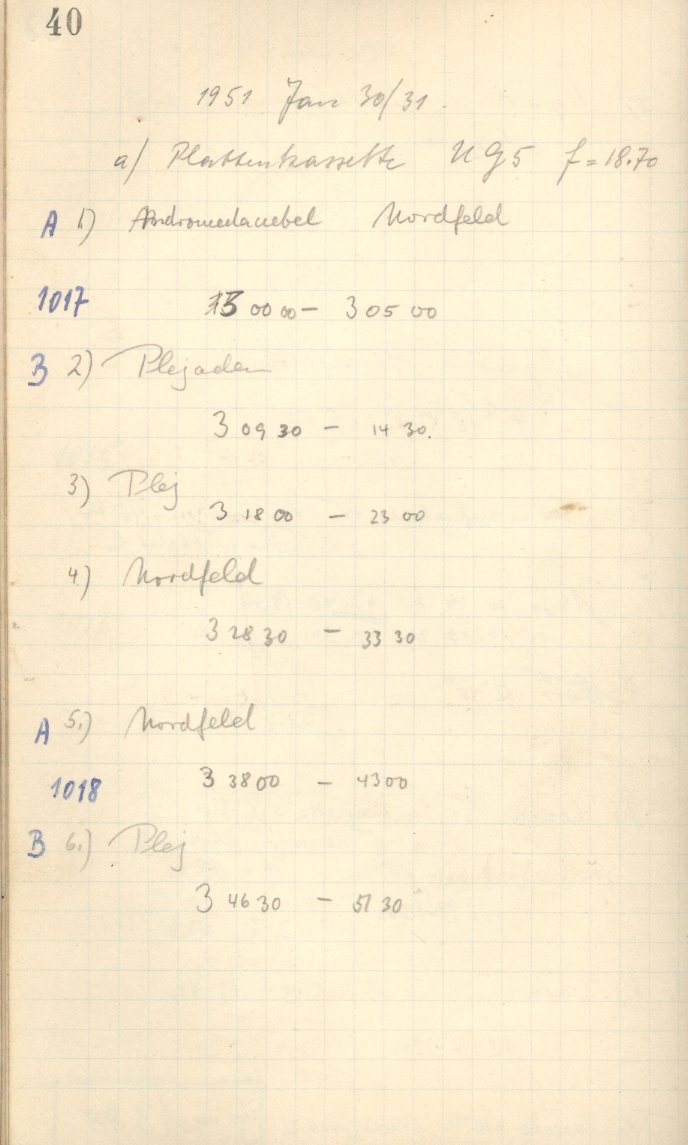 40
1951 Jan 30/31.
a) Plattenkassette UG5 f=18.70
A 1) Andromedanebel Nordfeld
1017 3 00 00 – 3 05 00
B 2) Plejaden
3 09 30 – 14 30.
3) Plej
3 18 00 – 23 00
4) Nordfeld
3 28 30 – 33 30
A 5.) Nordfeld
1018 3 38 00 – 43 00
B 6.) Plej
3 46 30 – 51 30